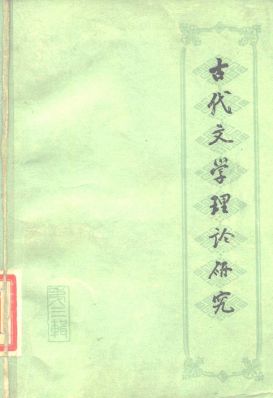 古代文学理论研究
第三辑